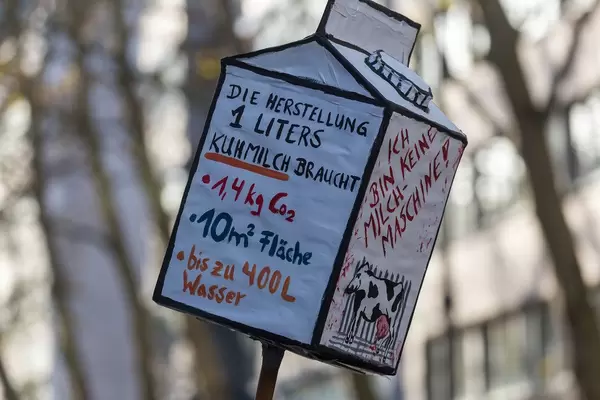 DIE HERSTELLUNG
1 LITERS
KUHMILCH BRAUCHT
• 1,4 kg CO2
• 10m² Fläche
• bis zu 400L
Wasser
ICH
BIN KEINE
MILCH-
MASCHINE!